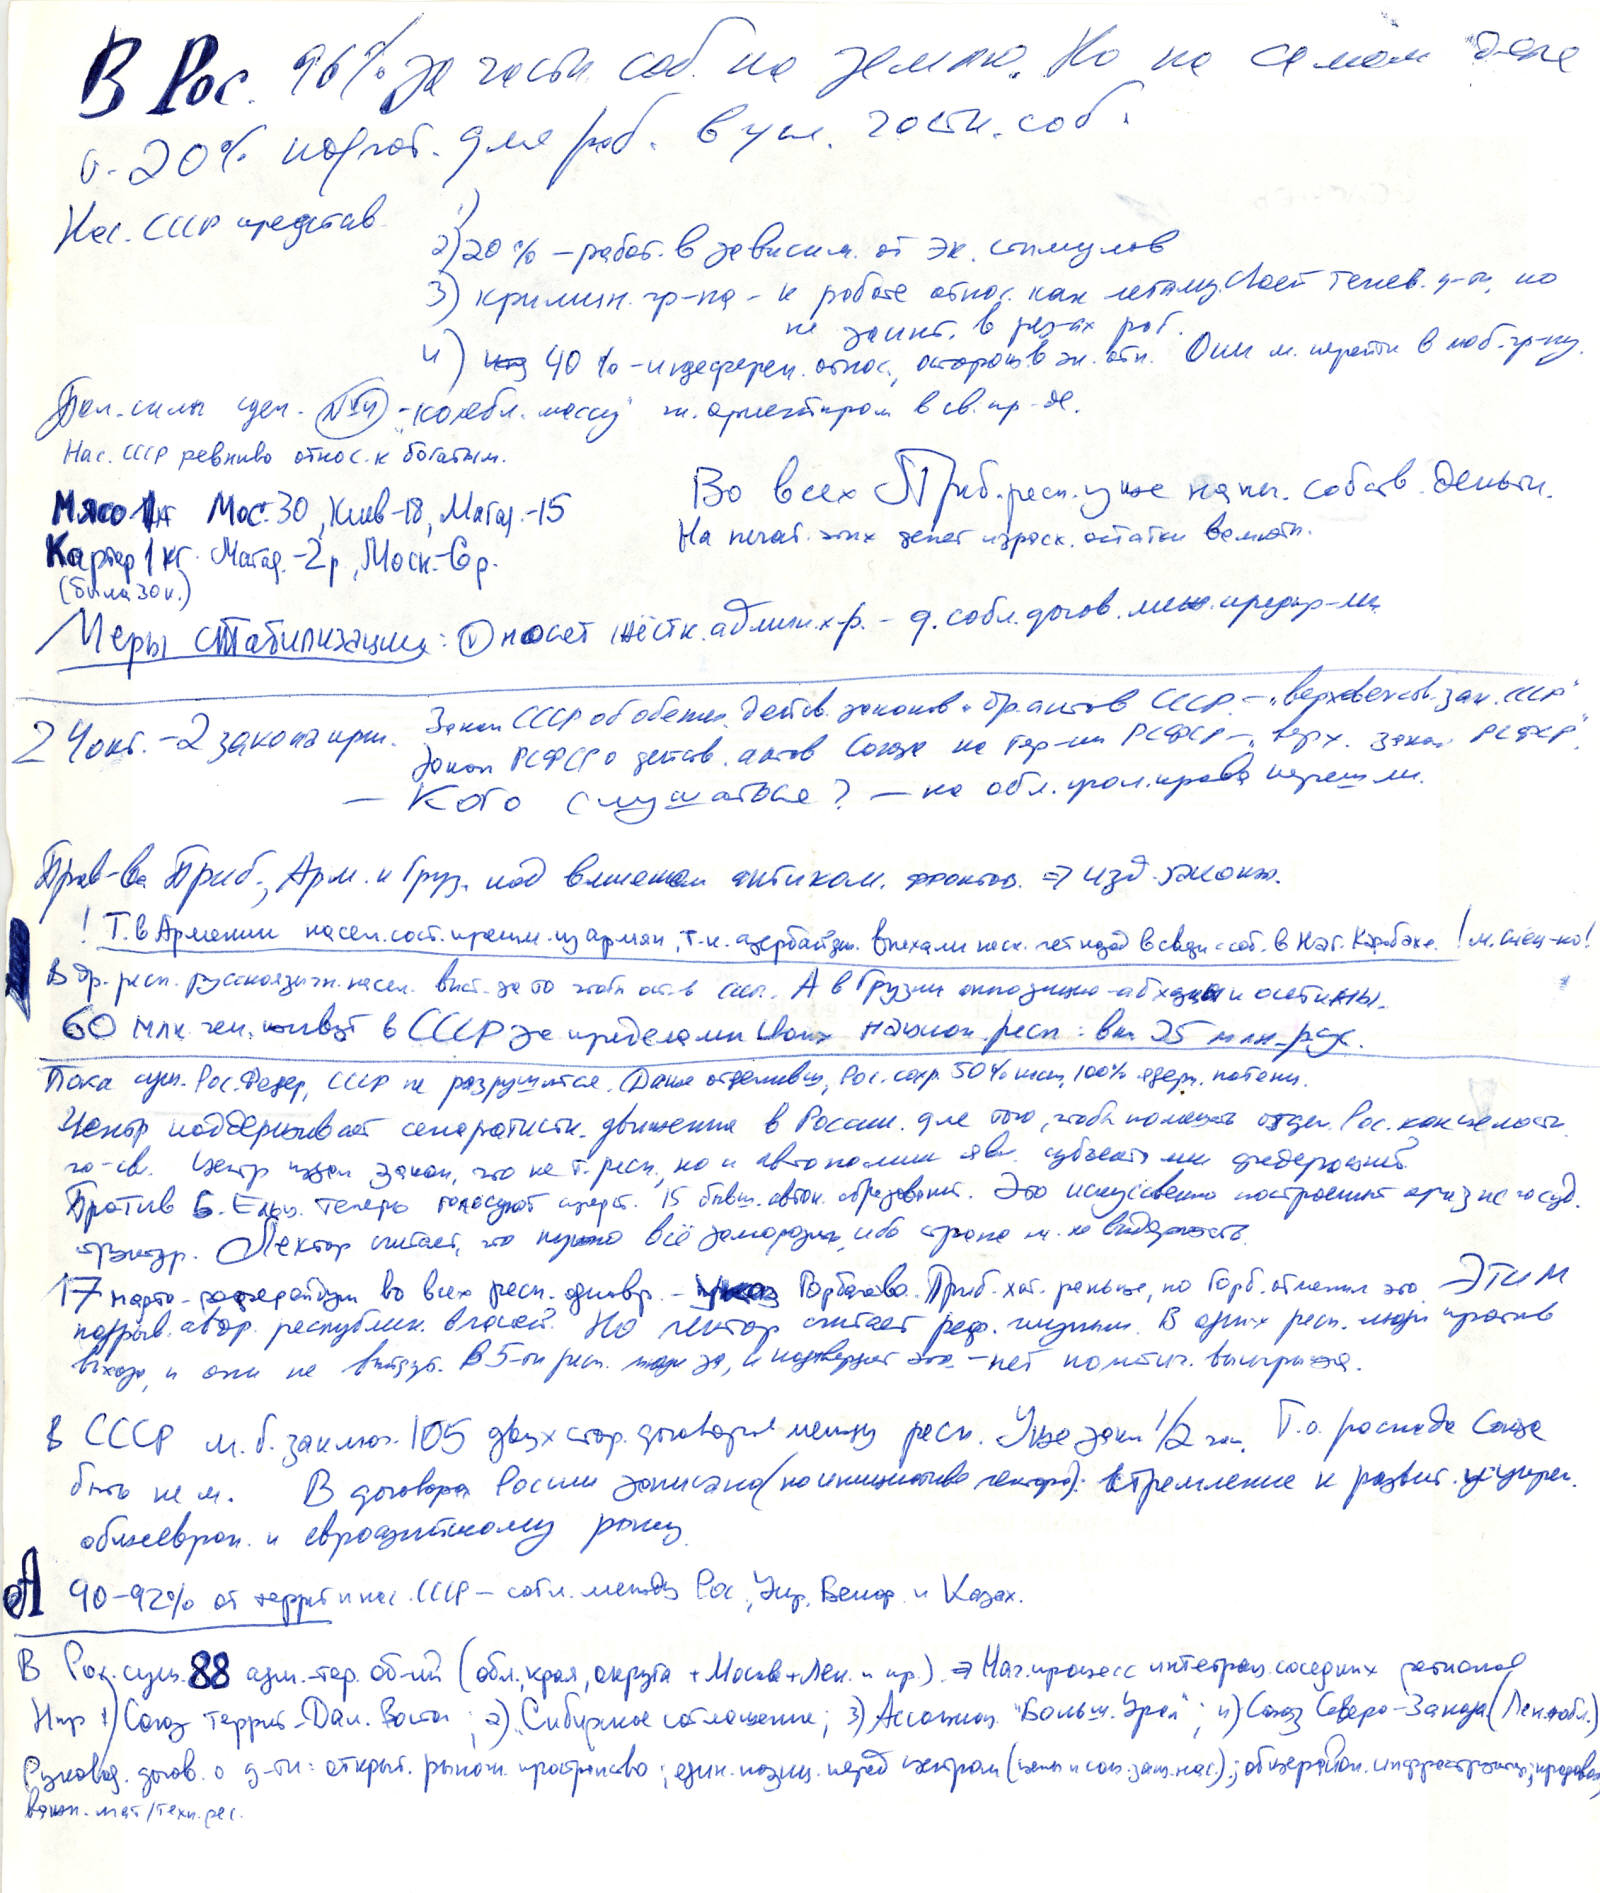 В Рос. 96% за частн. соб. на землю. Но на самом деле
т. 20% подгот. для раб. в усл. частн. соб.
Нас. СССР представ. 1)
2) 20% – работ. в зависим. от эк. стимулов
3) кримин. гр-па – к работе относ. как легализ. своей тенев. д-ти, но
не заинт. в рез-ах раб.
4) 40% – индеферен. относ., осторожн. в эк. отн. Они м. перейти в люб. гр-пу.
Пол. силы цел. №4 – "колебл. массу" эк. ориентиром в св. пр-ме.
Нас. СССР ревниво относ. к богатым.
Во всех Приб. респ. уже напеч. собств. деньги.
На печат. этих денег израсх. остатки валюты.
Мясо 1кг Мос. 30, Киев-18, Магад.-15
Картоф 1 кг. Магад.-2р, Моск.-6р.
(была 30 к.)
Меры стабилизации: 1) носят жёстк. админ. х-р. – д. собл. догов. меж. предпр-ми
24 окт. – 2 закона прин. Закон СССР об обеспеч. действ. законов и др. актов СССР. – "верховенств. зак. СССР"
Закон РСФСР о действ. актов Союза на тер-ии РСФСР – "верх. закон. РСФСР".
– Кого слушаться? – на обл. уров. права перешли.
Прав-ва Приб., Арм. и Груз. под влиянием антиком. фронтов. ⇒ изд. законы.
! Т. в Армении насел. сост. преим. из армян, т.к. азербайдж. выехали неск. лет назад в связи с соб. в Наг. Карабахе. !
В др. респ. русскоязычн. насел. выст. за то чтобы ост. в СССР. А в Грузии оппозицию – абхазцы и осетины.
60 млн. чел. живёт в СССР за пределами своих национ. респ.: вкл 25 млн. рус.
Пока сущ. Рос. Федер, СССР не разрушится. Даже отделивш, Рос. сохр. 50% пром, 100% ядерн. потенц.
Центр поддерживает сепаратистск. движения в России. для того, чтобы помешать отдел. Рос. как целостн.
го-ва. Центр издал закон, что не т. респ, но и автономии явл. субъектами федерации.
Против Б. Ельц. теперь голосуют предст. 15 бывш. автон. образований. Это искусственно построенный кризис госуд.
структур. Лектор считает, что нужно всё заморозить, ибо страна м. не выдержать.
17 марта – референдум во всех респ. одновр. – указ Горбачева. Приб. хот. раньше, но Горб. отменил это. Этим
подрыв. автор. республик. властей. Но лектор считает реф. лишним. В одних респ. люди против
выхода, и они не выйдут. В 5-ти респ. люди за, и подтвердят это – нет политич. выигрыша.
В СССР м. б. заключ. 105 двухстор. договоров между респ. Уже закл 1/2 из них. Т.о. распада Союза
быть не м. В договорах России записано (по инициативе лектора): стремление к развит. и укреп.
общеевроп. и евроазиатскому рынку.
А 90–92% от террит и нас. СССР – согл. между Рос., Укр. Белор. и Казах.
В Рос. сущ. 88 адм.-тер. об-ий (обл., края, округа + Москва + Лен. и пр.) ⇒ Нач. процесс интеграц. соседних регионов
Напр 1) Союз террит. Дал. Восток; 2) "Сибирское соглашение; 3) Ассоциац. "Больш. Урал"; 4) Союз Северо-Запада (Лен. + обл.)
Руковод. догов. о д-ти: открыт. рыночн. пространство; един. позиц. перед центром (цены и соц. защ. нас.); общерайон. инфраструктура;
взаим. мат/техн. рес.